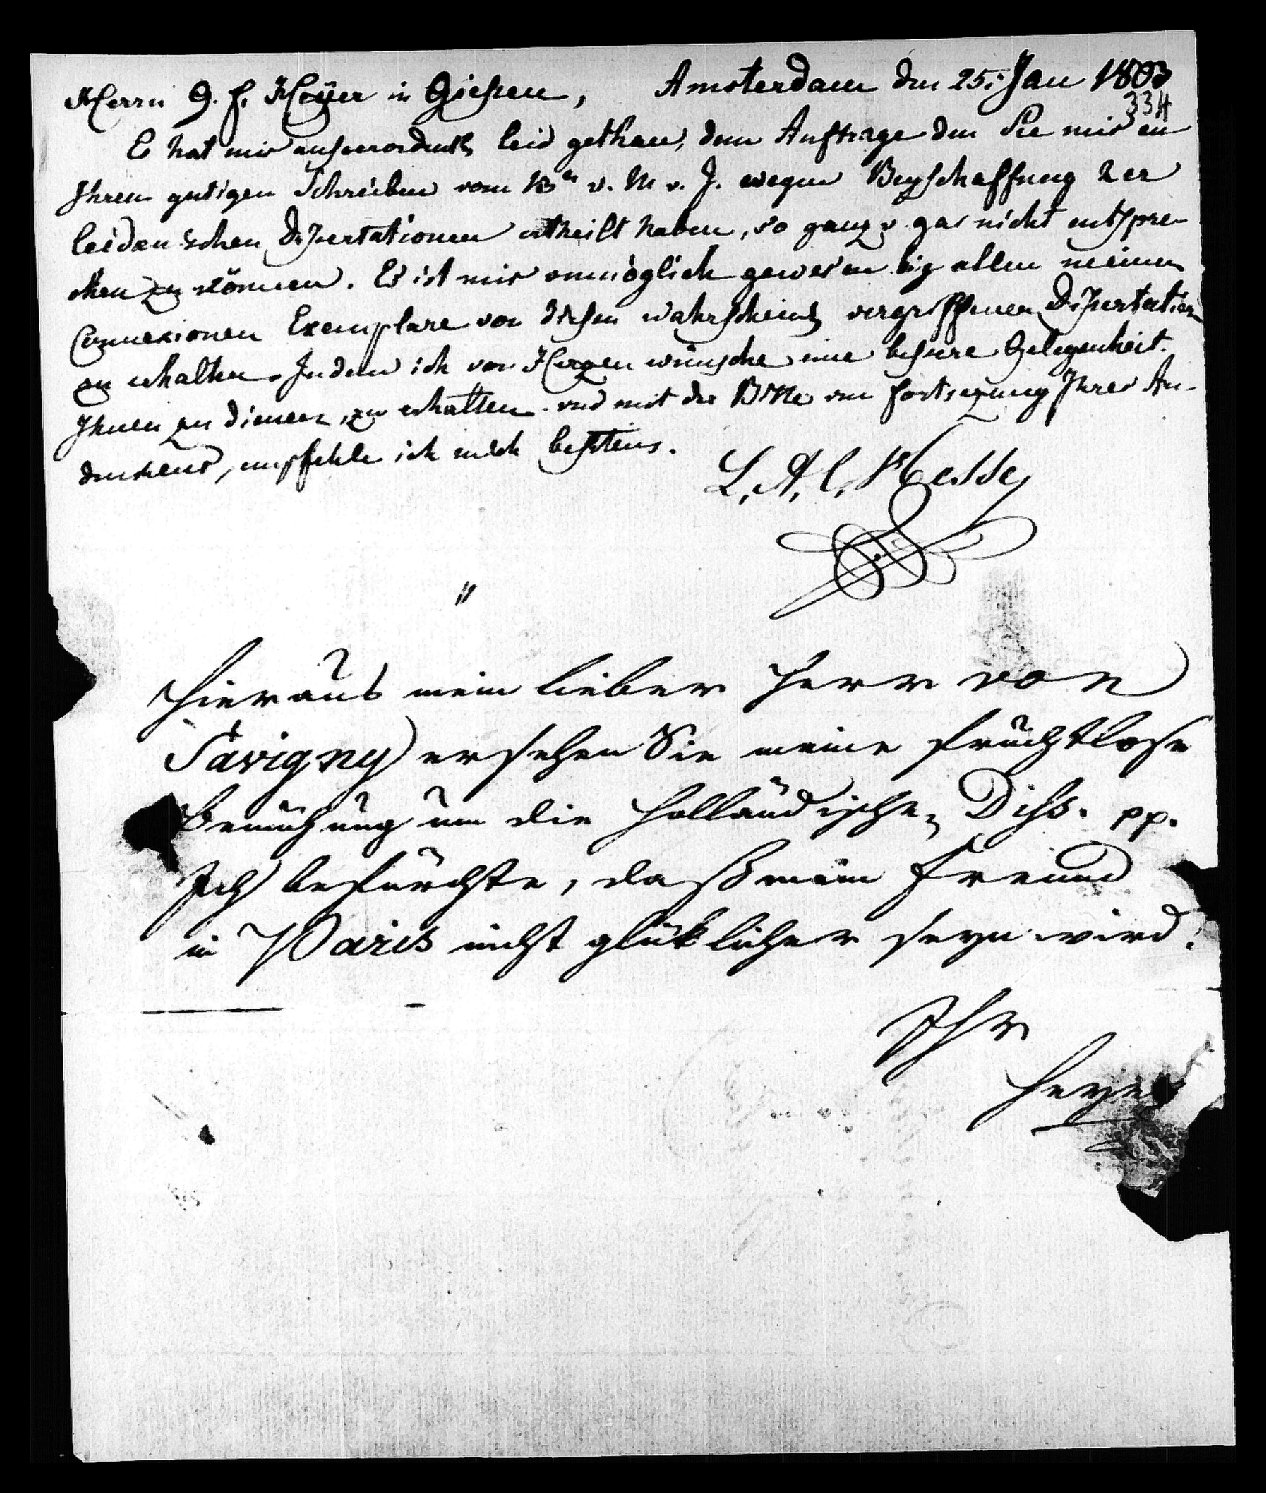 Herrn G. F. Heyer in Giessen, Amsterdam den 25. Jan 1803
334
Es hat mir ausserordentl. leid gethan, dem Auftrage den Sie mir in
Ihren gutigen Schreiben vom 18n v. M. v. J. wegen Beyschaffung 2er
leidenschen Dissertationen ertheilt haben, so ganz u. gar nicht entspre-
chen zu können. Es ist mir onmöglich gewesen bey allen meinen
Connexionen Exemplare von diesen wahrscheinl. vergriffenen Dissertation
zu erhalten. Indem ich von Herzen wünsche eine bessere Gelegenheit
Ihnen zu dienen, zu erhalten und mit der Bitte um fortsezung Ihres An-
denkens, empfehle ich mich bestens.
L. A. C. Hesse
Hieraus mein lieber Herr von
Savigny ersehen Sie meine fruchtlose
Bemühung um die holländischen Diss. pp.
Ich befürchte, daß mein Freund
in Paris nicht glüklicher seyn wird.
Ihr
Heyer